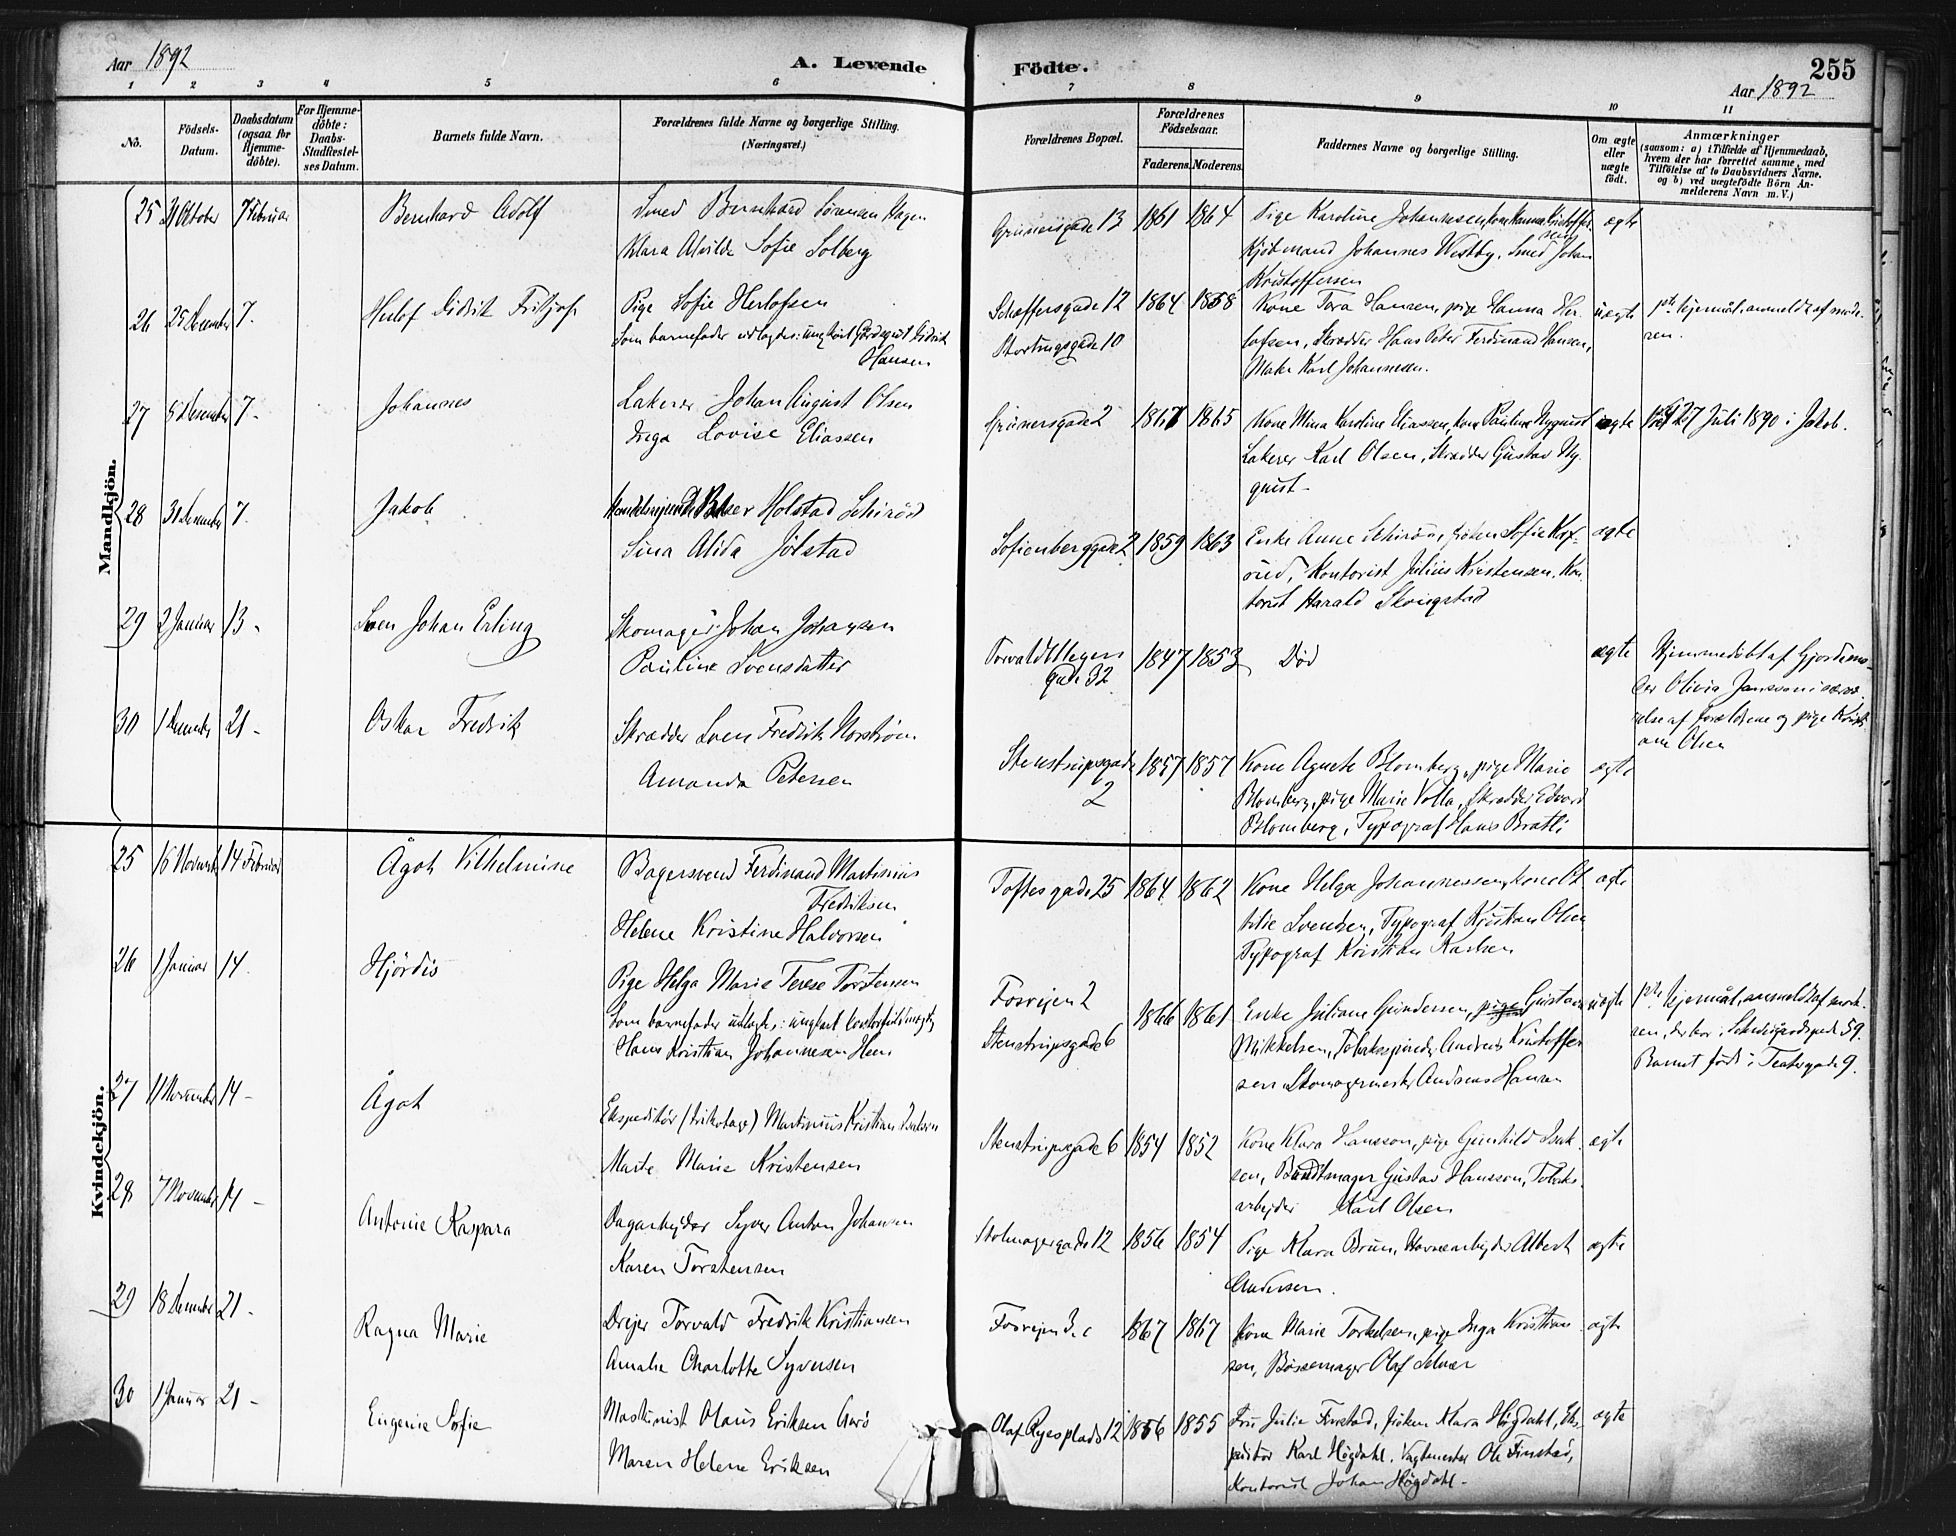 Aar 1892
A. Levende Födte.
255
Aar 1892
1 2 3 4 5 6 7 8 9 10 11
No.
Födsels-Datum.
Daabsdatum (ogsaa for Hjemme-döbte).
For Hjemme-döbte: Daabs-Stadfæstel-ses Datum.
Barnets fulde Navn.
Forældrenes fulde Navne og borgerlige Stilling. (Næringsvei.)
Forældrenes Bopæl.
Forældrenes Födselsaar.
Faderens. Moderens.
Faddernes Navne og borgerlige Stilling.
Om ægte eller uægte födt.
Anmærkninger
(saasom: a) i Tilfælde af Hjemmedaab, hvem der har forrettet samme, med Tilföielse af to Daabsvidners Navne, og b) ved uægtefödte Börn An-melderens Navn m. V.)
Mandkjön.
25 31 Oktober 7 Februar Bernhard Adolf
Smed Bernhard Sörensen Hagen
Klara Alvilde Sofie Solberg
Grünersgade 13 1861 1864
Pige Karoline Johannesen, kone Hanna Kristoffer-
sen,
Kjöbmand Johannes Westby, Smed Johan
Kristoffersen
ægte
26 25 December 7. Herlof Didrik Fritjof
Pige Sofie Herlofsen
Som barnefader udlagdes: ungkarl Didrik
Hansen
Schæffersgade 12 1864 1858
Stortingsgade 10
Kone Tora Hansen, pige Hanna Her-
lofsen, Skrædder Hans Peter Ferdinand Hansen,
Maler Karl Johannesen.
uægte
1ste lejermål, anmeldt af mode-
ren.
27 5 December 7. Johannes
Lakerer Johan August Olsen
Inga Lovise Eliassen
Grünersgade 2 1867 1865
Kone Mina Karoline Eliassen, kone Pauline Nyquist
Lakerer Karl Olsen, Skrædder Gustav Ny-
quist.
ægte
27 Juli 1890 i Jakob.
28 31 December 7. Jakob
Holstad Schiröd
Sina Alida Jölstad
Sofienberggade 2 1859 1863
Enke Anne Schiröd, fröken Sofie
Kontorist Julius Kristensen, Kon-
torist Harald Skougstad
ægte
29 2 Januar 13. Sven Johan Erling
Skomager Johan Johansen
Pauline Svensdatter
Torvald Meyers
gade 32 1847 1853 Död
ægte
Hjemmedöbt af Gjordemo-
der Olivia Jansson i nærvæ-
relse af forældrene og pige Kristi-
ane Olsen
30 1 December 21. Oskar Fredrik
Skrædder Sven Fredrik Norström
Amanda Petersen
Stenstrupsgade
2 1857 1857
Kone Agnete Blomberg, pige Marie
Blomberg, pige Marie Volla, Skrædder Edvard
Blomberg, Typograf Hans Bratli
ægte
Kvindekjön.
25 16 November 14 Februar Ågot Vilhelmine
Bagersvend Ferdinand Martinius
Fredriksen
Helene Kristine Halvorsen
Toftesgade 25 1864 1862
Kone Helga Johannessen, kone Ot-
tilie Svendsen, Typograf Kristian Olsen
Typograf Kristian Karlsen
ægte
26 1 Januar 14. Hjördis
Pige Helga Marie Terese Torstensen
Som barnefader udlagdes: ungkarl
Claus Kristian Johannesen Hem
Fosvejen 2
Stenstrupsgade 6 1866 1861
Enke Juliane Gundersen, Gustava
Mikkelsen, Tobakspinder Andreas Kristoffer-
sen Skomagermester Andreas Hansen
uægte
1ste lejermål, anmeldt af mode-
ren, der bor i Schweigaardsgade 59.
Barnet födt i Teatergade 9.
27 11 November 14. Ågot
Ekspeditör (trikotage) Martinius Kristian Isaksen
Marte Marie Kristensen
Stenstrupsgade 6 1854 1852
Kone Klara Hansson, pige Gunhild Isak-
sen, Gustav Hansson, Tobaks-
arbejder Karl Olsen
ægte
28 7 November 14. Antonie Kaspara
Dagarbejder Syver Anton Johansen
Karen Torstensen
Stolmagergade 12 1856 1854
Pige Klara Brun, Havnearbejder Albert
Andersen.
ægte
29 18 December 21. Ragna Marie
Drejer Torvald Fredrik Kristiansen
Amalie Charlotte Syversen
Fosvejen 3 c 1867 1867
Kone Marie Torkelsen, pige Inga Kristian-
sen, Bössemager Olaf
ægte
30 1 Januar 21. Eugenie Sofie
Maskinist Olaus Eriksen Aurö
Maren Helene Eriksen
Olaf Ryes plads 12 1856 1855
Fru Julie Finstad, fröken Klara Högdahl, Eks-
peditör Karl Högdahl, Vagtmester Ole Finstad,
Kontorist Johan Högdahl.
ægte